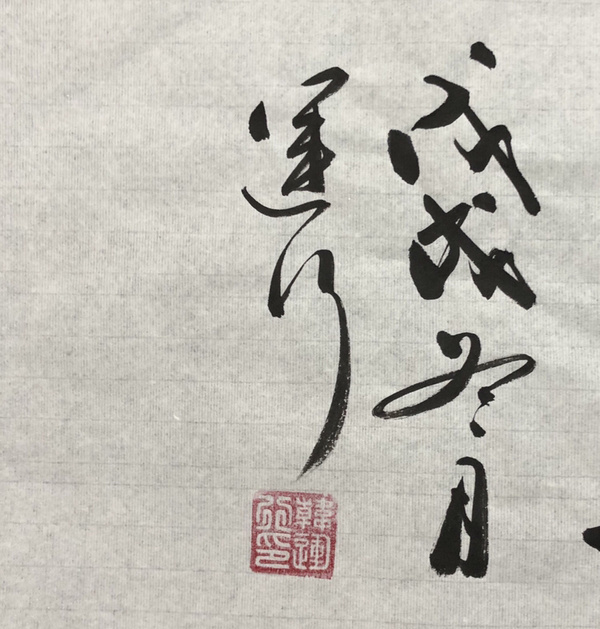 戊戌冬月
運行
韓運行印